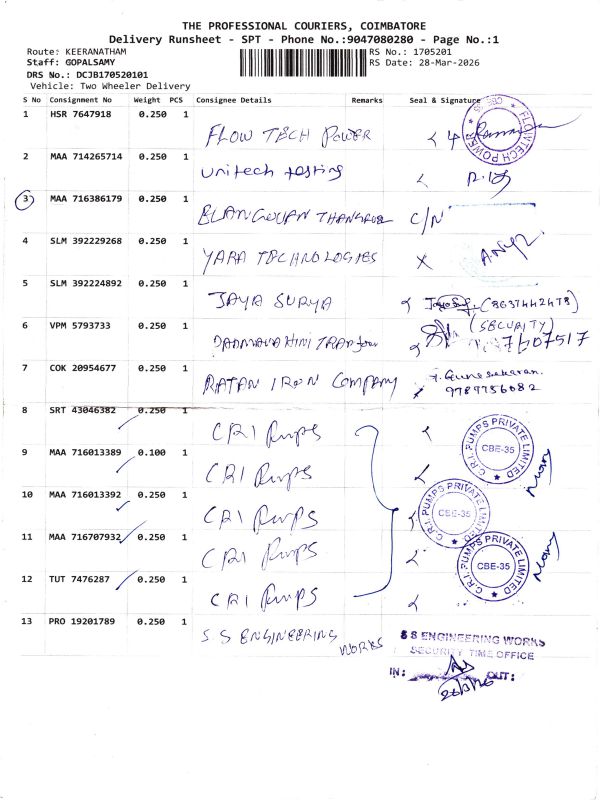 THE PROFESSIONAL COURIERS, COIMBATORE
Delivery Runsheet - SPT - Phone No.:9047080280 - Page No.:1
Route: KEERANATHAM
RS No.: 1705201
Staff: GOPALSAMY
RS Date: 28-Mar-2026
DRS No.: DCJB170520101
Vehicle: Two Wheeler Delivery
S No Consignment No Weight PCS Consignee Details Remarks Seal & Signature
1 HSR 7647918 0.250 1 FLOW TECH POWER
FLOWTECH POWER CBE-35
2 MAA 714265714 0.250 1 Unitech testing
3 MAA 716386179 0.250 1 C/N
4 SLM 392229268 0.250 1 YARA TECHNOLOGIES
5 SLM 392224892 0.250 1 JAYA SURYA (8637442478)
6 VPM 5793733 0.250 1 (SECURITY)
7 COK 20954677 0.250 1 RATAN IRON Company
9789756082
8 SRT 43046382 0.250 1 CRI Pumps
C.R.I. PUMPS PRIVATE LIMITED CBE-35
9 MAA 716013389 0.100 1 CRI Pumps
10 MAA 716013392 0.250 1 CRI Pumps
C.R.I. PUMPS PRIVATE LIMITED CBE-35
11 MAA 716707932 0.250 1 CRI Pumps
C.R.I. PUMPS PRIVATE LIMITED CBE-35
12 TUT 7476287 0.250 1 CRI Pumps
13 PRO 19201789 0.250 1 S S ENGINEERING WORKS
S S ENGINEERING WORKS
SECURITY TIME OFFICE
IN: OUT: